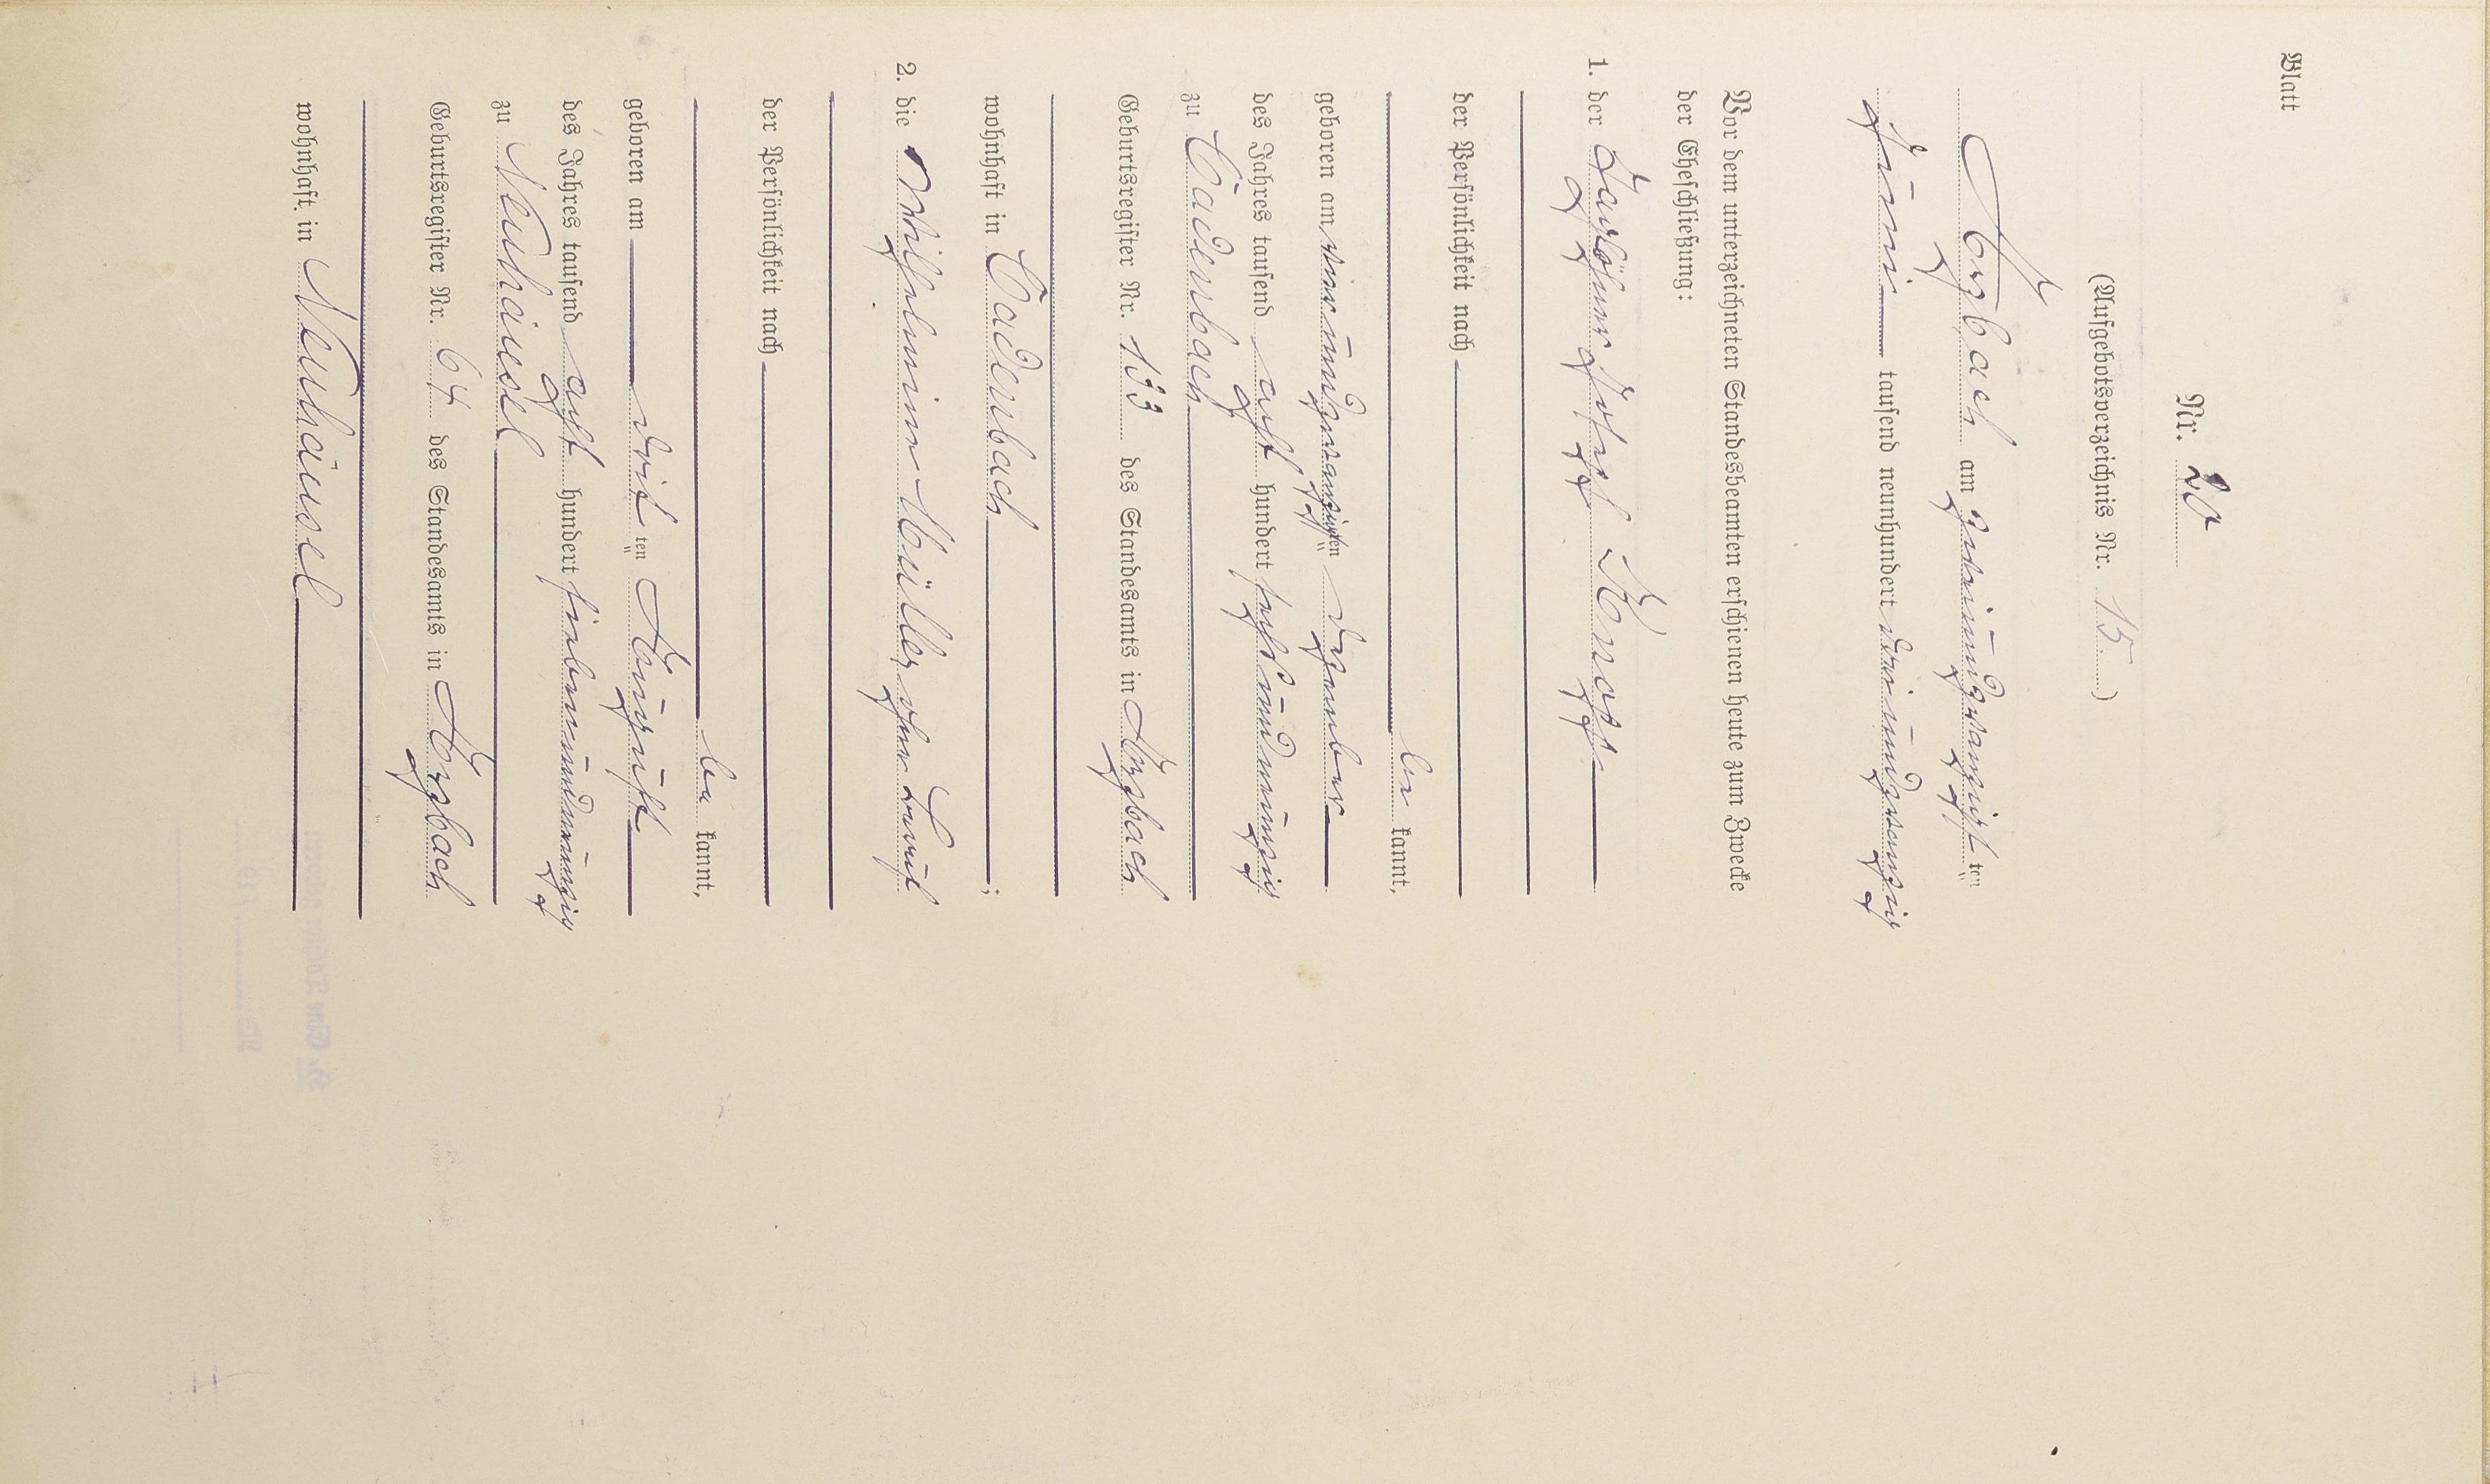 Blatt
Nr. 20
(Aufgebotsverzeichnis Nr. 15.)
Arzbach am zweiundzwanzigsten
Juni tausend neunhundert dreiundzwanzig
Vor dem unterzeichneten Standesbeamten erschienen heute zum Zwecke
der Eheschließung:
1. der Taglöhner Josef Knopp
der Persönlichkeit nach
be kannt,
geboren am vierundzwanzigsten Dezember
des Jahres tausend acht hundert sechsundneunzig
zu Cadenbach
Geburtsregister Nr. 133 des Standesamts in Arzbach
wohnhaft in Cadenbach;
2. die Wilhelmine Müller, ohne Beruf
der Persönlichkeit nach
be kannt,
geboren am dritten August
des Jahres tausend acht hundert siebenundneunzig
zu Neuhäusel
Geburtsregister Nr. 64 des Standesamts in Arzbach
wohnhaft in Neuhäusel